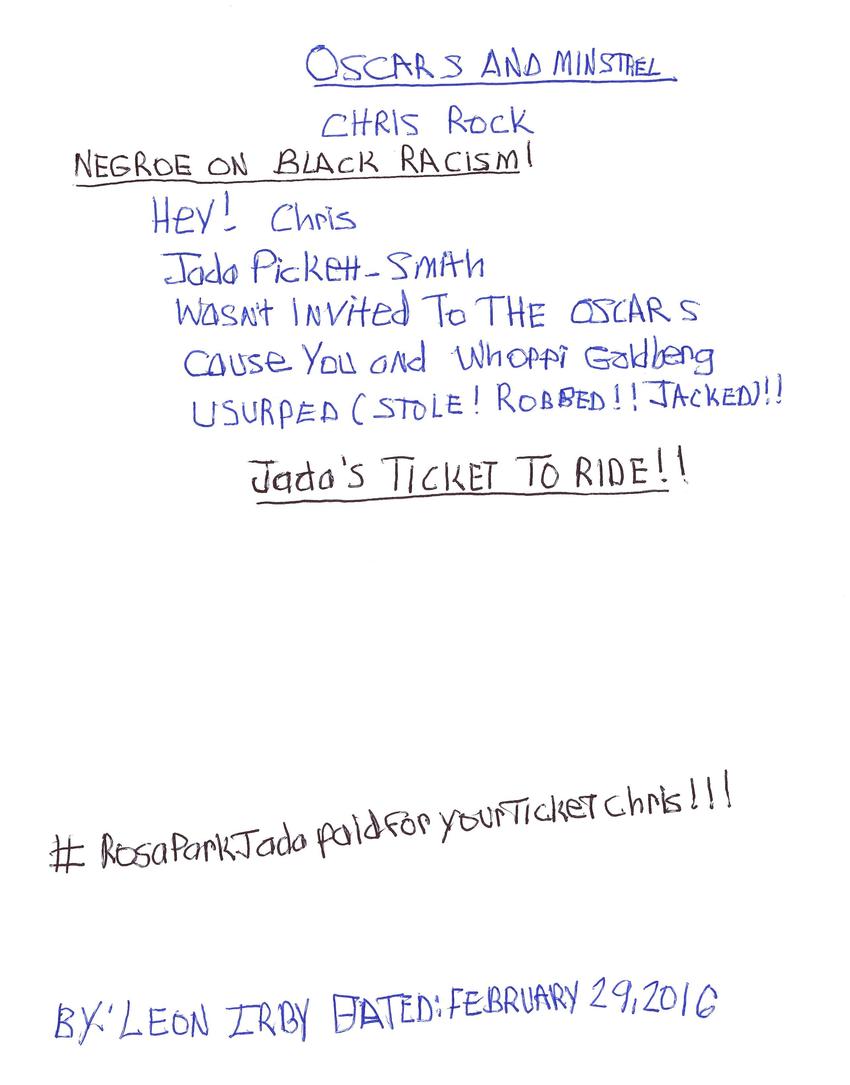 OSCARS AND MINSTREL
CHRIS ROCK
NEGROE ON BLACK RACISM!
Hey! Chris
Jada Pickett-Smith
WASN't INVited To THE OSCARS
Cause You and Whoppi Goldberg
USURPED (STOLE! ROBBED!! JACKED)!!
Jada's TICKET TO RIDE!!
# RosaParkJada paidFor yourTicketChris!!!
BY: LEON IRBY DATED: FEBRUARY 29, 2016